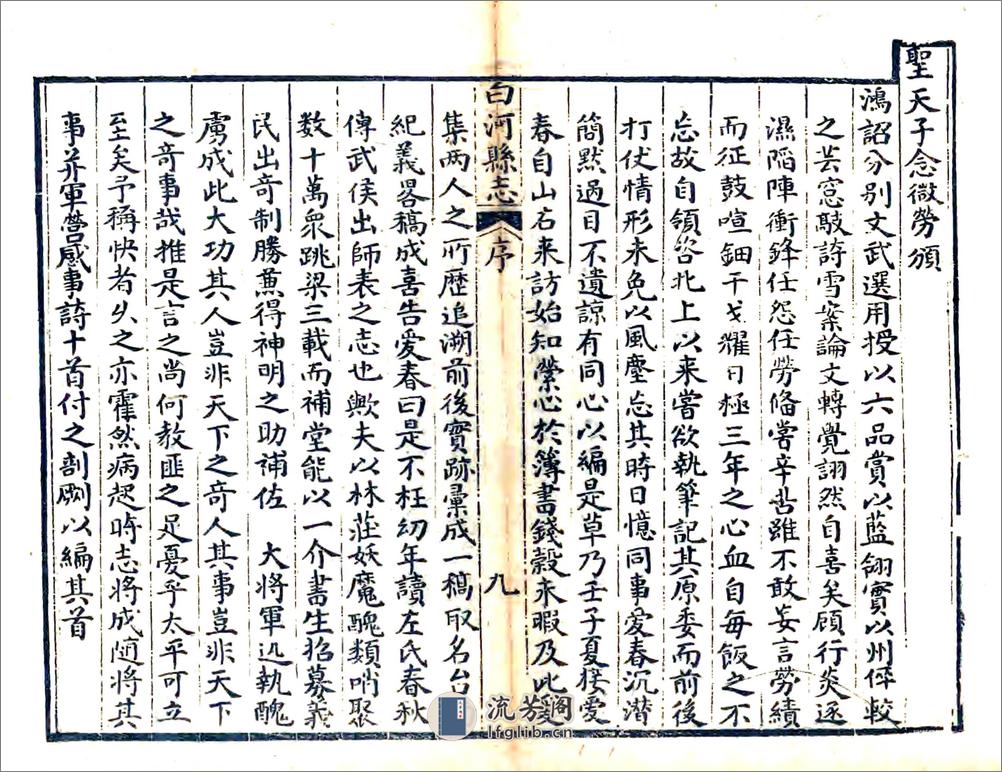 聖天子念微勞頒
鴻詔分別文武選用授以六品賞以藍翎實以州倅較
之芸窓敲詩雪案論文轉覺詡然自喜矣顧行炎逐
濕陷陣衝鋒任怨任勞備嘗辛苦雖不敢妄言勞績
而征鼓喧鈿干戈耀日極三年之心血自每飯之不
忘故自領咨北上以來嘗欲執筆記其原委而前後
打仗情形未免以風塵忘其時日憶同事愛春沉潛
簡默過目不遺諒有同心以編是草乃壬子夏接愛
春自山右来訪始知縈心於簿書錢穀未暇及此爰
白河縣志
序
九
集兩人之所歷追溯前後實跡彙成一稿取名台
紀義畧稿成喜告愛春曰是不枉幼年讀左氏春秋
傳武侯出師表之志也歟夫以林莊妖魔醜類哨聚
数十萬衆跳梁三載而補堂能以一介書生招募義
民出奇制勝蕪得神明之助補佐 大將軍迅執醜
虜成此大功其人豈非天下之奇人其事豈非天下
之奇事哉推是言之尚何教匪之足憂乎太平可立
至矣予稱快者久之亦霍然病起時志將成随將其
事并軍營感事詩十首付之剖劂以編其首
流芳閣
lfglib.cn